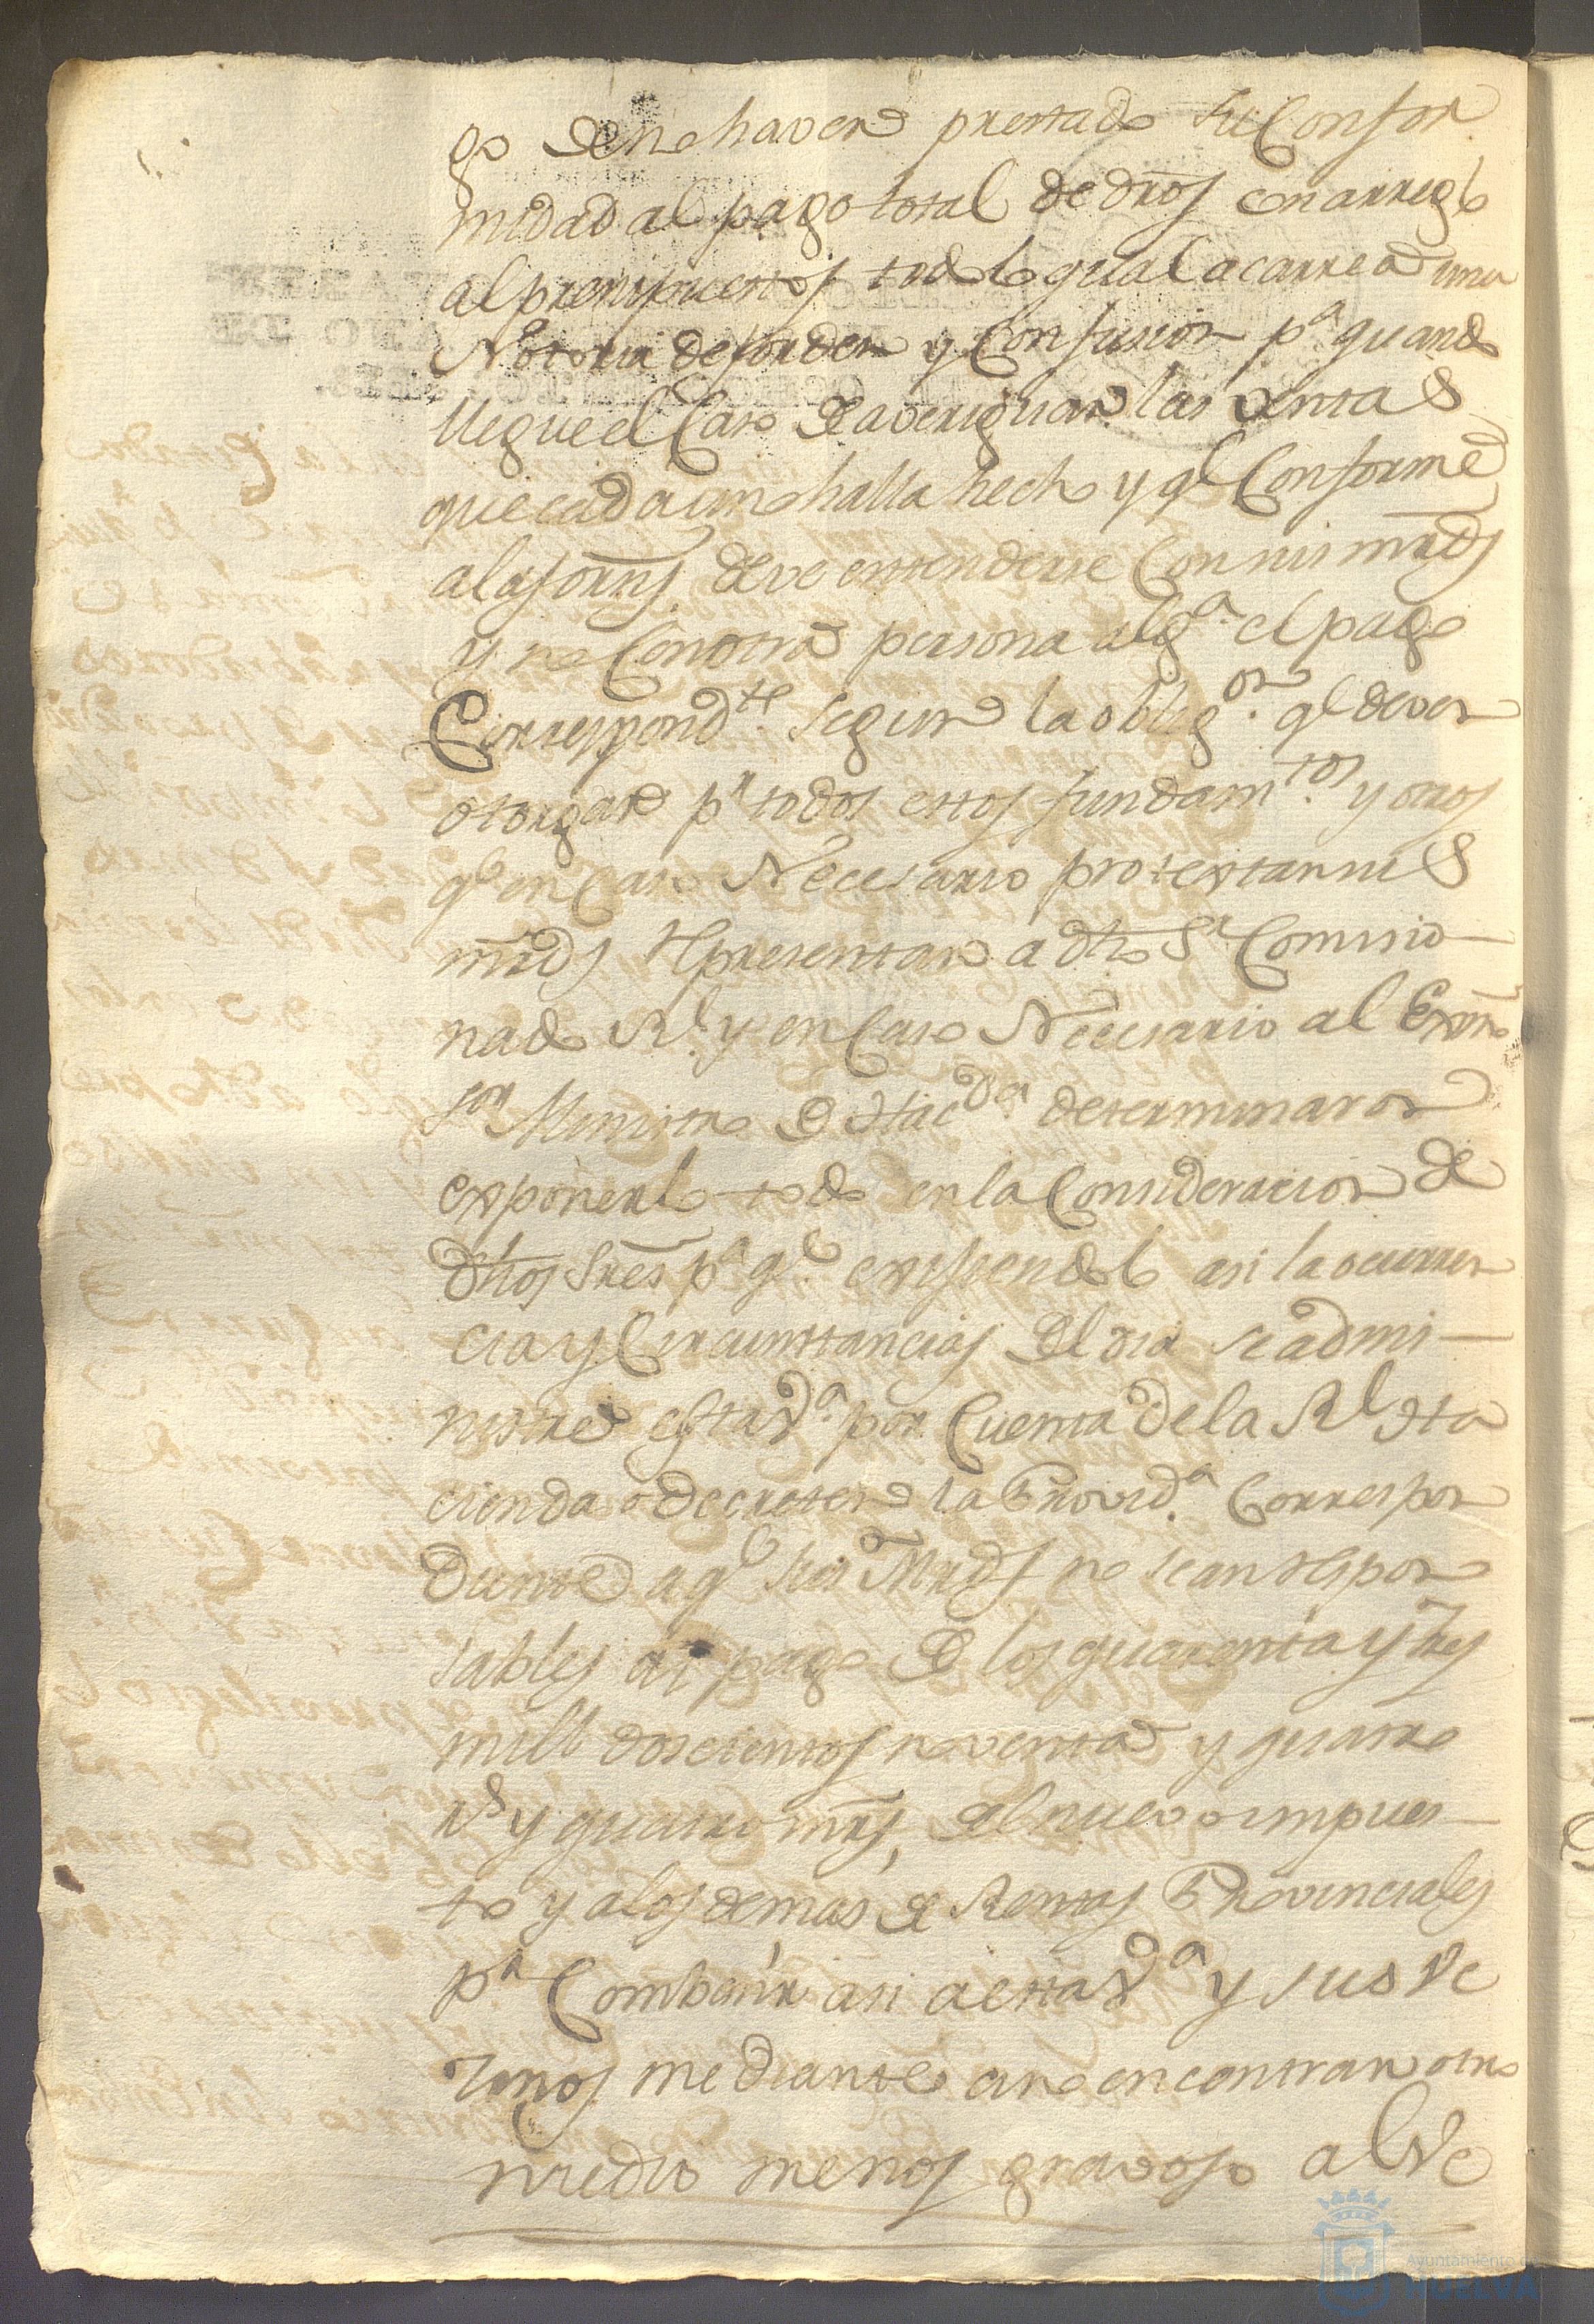 go de no haver prestado su Confor
midad al pago total de dros con arreglo
al presupuesto, todo lo qual acarrea una
Notoria desorden y Confusion pa quando
llegue el Caso de averiguar las ventas
que cada uno halla hecho y qe Conforme
a las ornes. deve entenderse Con sus mrds
y no Con otra persona alga. el pago
Correspondte. segun la obligon. qe deven
otorgar pr todos estos fundamtos. y otros
qe en Caso Necesario protextan sus
mrds Representar a dho Sr Comisio
nado Rl. y en Caso Necesario al Exmo
sor Ministro de Hacda determinaron
exponerlo todo en la Consideracion de
dhos Sres pa qe. exigiendolo asi la ocurren
cia y Circunstancias del dia se admi
nistre esta Va. por Cuenta de la Rl Ha
cienda o decreten la Provida. Correspon
diente a qe sus Mrds no sean respon
sables al pago de los quarenta y tres
mill doscientos noventa y quatro
rs y quatro mrs, del nuevo impues
to y a los demas de Rentas Provinciales
pa Combenir asi a esta Va y sus Ve
zinos mediante a no encontrar otro
medio menos gravoso al Ve
Ayuntamiento de
HUELVA